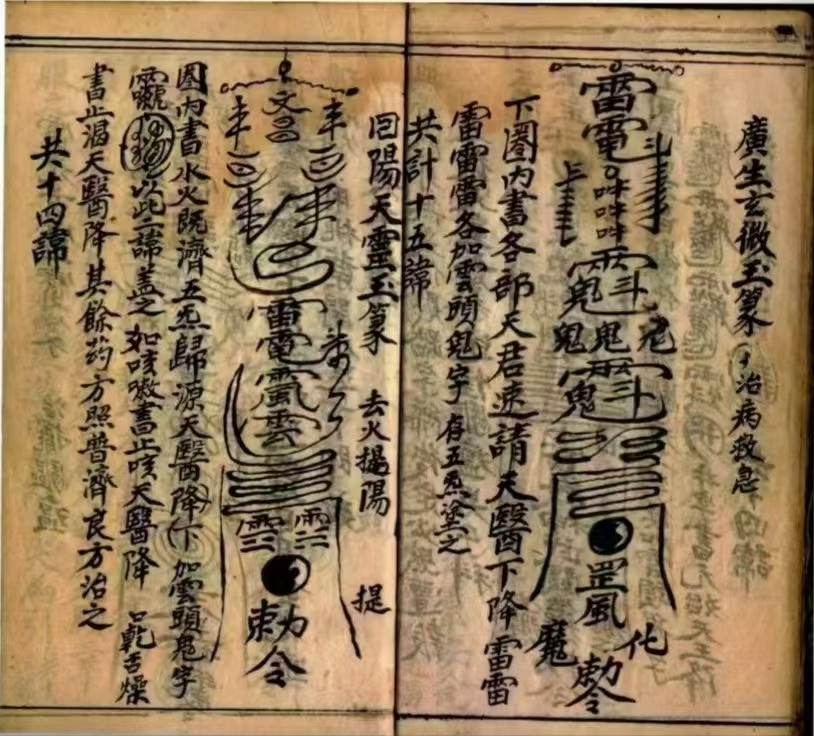 廣生玄微玉篆 治病救急
雷電
斗
吽吽吽
鬼 鬼
罡風
魔 化
勅令
下圈內書各部天君速請天醫下降雷雷
雷雷雷各加雲頭鬼字存五炁塗之
共計十五諱
回陽天靈玉篆 去火提陽 提
文昌
雷電風雲
勅令
圈內書水火既濟五炁歸源天醫降下加雲頭鬼字
以此二諱蓋之 如咳嗽書止咳天醫降 口乾舌燥
書止渴天醫降其餘药方照普濟良方治之
共十四諱